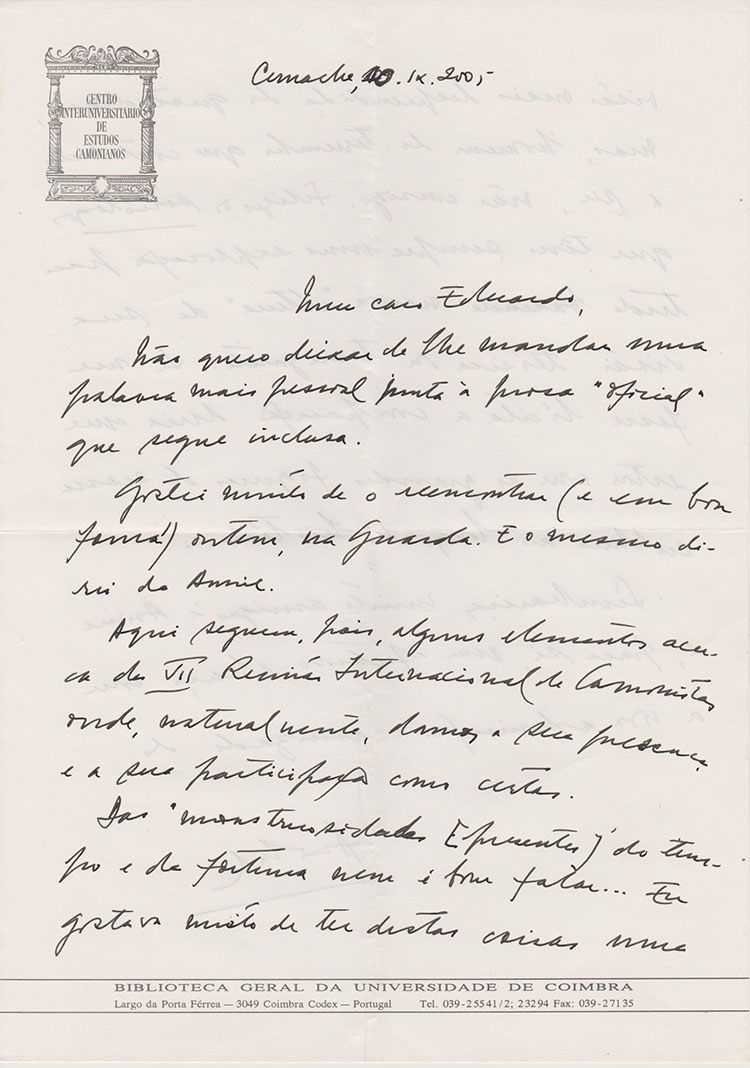 CENTRO
INTERUNIVERSITÁRIO
DE
ESTUDOS
CAMONIANOS
Cernache, 10.IX.2005
Meu caro Eduardo,
Não quero deixar de lhe mandar uma
palavra mais pessoal junta à prosa "oficial"
que segue inclusa.
Gostei muito de o reencontrar (e em boa
forma!) ontem, na Guarda. E o mesmo di-
rei da Annie.
Aqui seguem, pois, alguns elementos acer-
ca da VII Reunião Internacional de Camonistas
onde, naturalmente, damos a sua presença
e a sua participação como certas.
Das "monstruosidades [presentes] do tem-
po e da fortuna nem é bom falar... Eu
gostava muito de ter destas coisas uma
BIBLIOTECA GERAL DA UNIVERSIDADE DE COIMBRA
Largo da Porta Férrea — 3049 Coimbra Codex — Portugal Tel. 039-25541/2; 23294 Fax: 039-27135